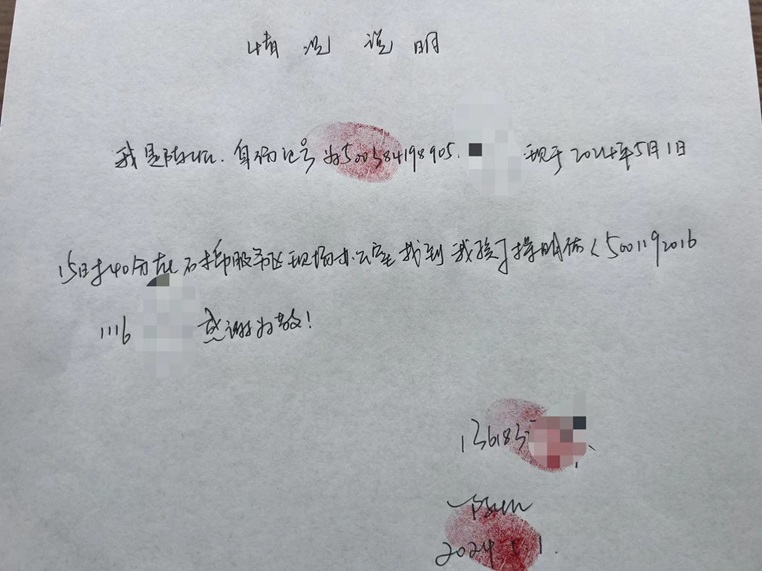 情况说明
我是 身份证号为500384198905 现于2024年5月1日
15时40分在 服 现场办公室找到我孩子 500119 2016
1116 感谢为敬!
136183
2024 1.